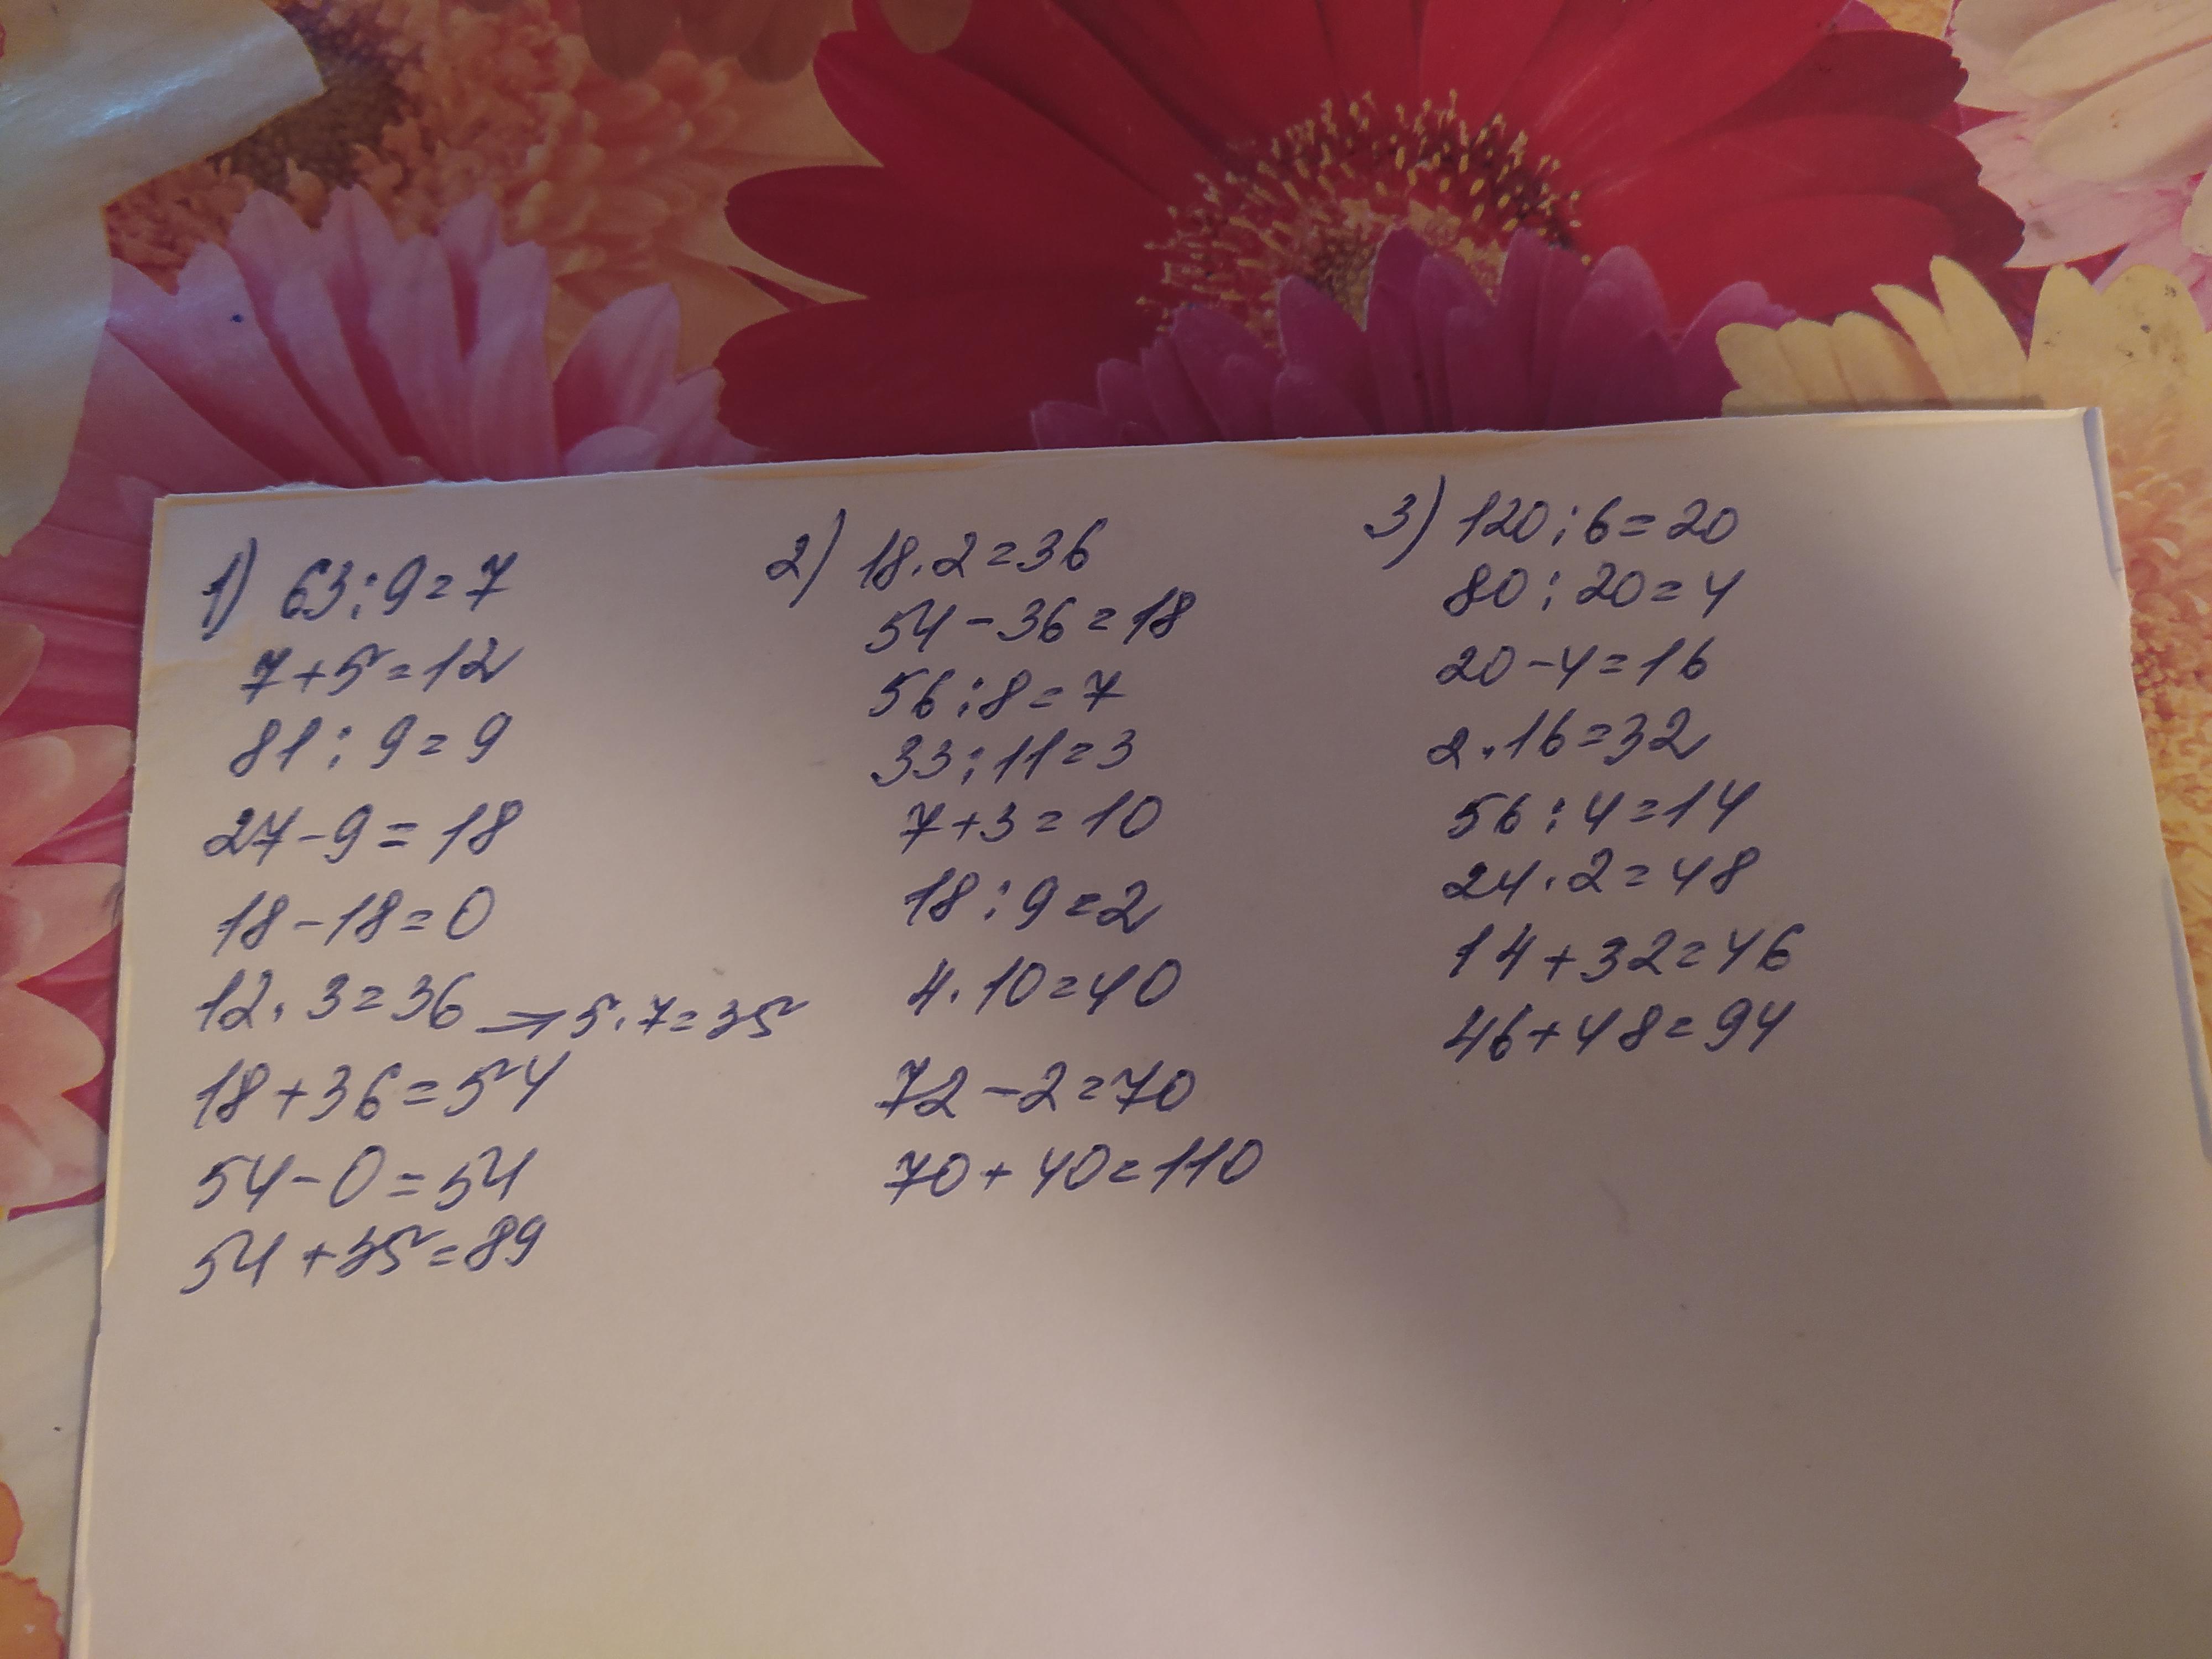 1) 63:9=7
7+5=12
81:9=9
27-9=18
18-18=0
12·3=36 → 5·7=35
18+36=54
54-0=54
54+35=89
2) 18·2=36
54-36=18
56:8=7
33:11=3
7+3=10
18:9=2
4·10=40
72-2=70
70+40=110
3) 120:6=20
80:20=4
20-4=16
2·16=32
56:4=14
24·2=48
14+32=46
46+48=94